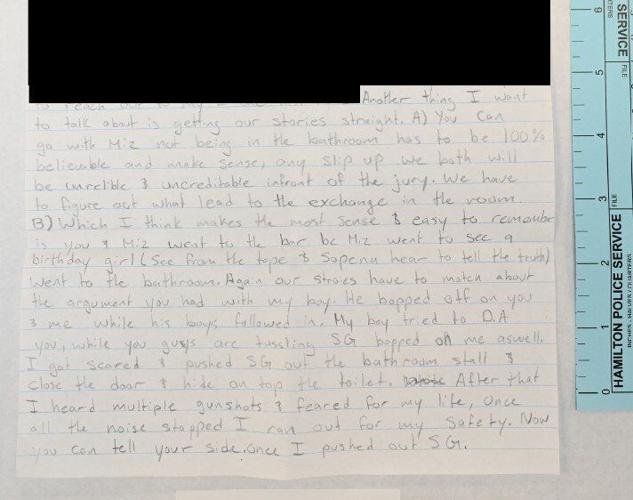 Another thing I want
to talk about is getting our stories straight. A) You can
go with Miz not being in the bathroom has to be 100%
believable and make sense, any slip up we both will
be unrelible & uncreditable infront of the jury. We have
to figure out what lead to the exchange in the room.
B) Which I think makes the most sense & easy to remember
is you & Miz went to the bar bc Miz went to see a
birthday girl (See from the tape & Sopena hear to tell the truth)
went to the bathroom. Again our stroies have to match about
the argument you had with my boy. He bopped off on you
& me while his boys followed in. My boy tried to D.A
you, while you guys are tussling SG bopped on me aswell.
I got scared & pushed SG out the bathroom stall &
close the door & hide on top the toilet. After that
I heard multiple gunshots & feared for my life, Once
all the noise stopped I ran out for my safety. Now
you can tell your side. once I pushed out SG.
HAMILTON POLICE SERVICE
FILE
SERVICE
FILE
0
1
2
3
4
5
6